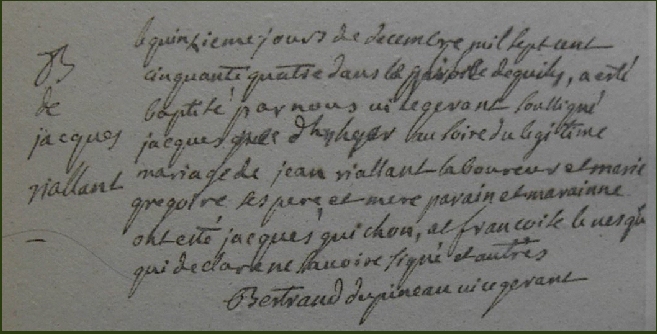 B
de
jacques
riallant
le quinzieme jours de decembre mil sept cent
cinquante quatre dans la paroisse de quily, a esté
baptisé par nous vicegerant soussigné
jacques née d'hyher au soire du legitime
mariage de jean riallant laboureur et marie
gregoire ses pere et mere parain et marainne
ont esté jacques guichon, et francoise le
qui declare ne scavoire signé et autres
Bertrand dupineau vicegerant